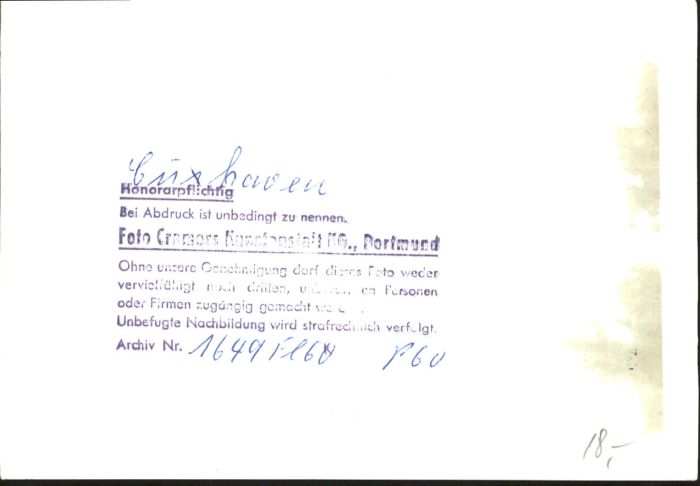 Cuxhaven
Honorarpflichtig
Bei Abdruck ist unbedingt zu nennen.
Foto Cramers Kunstanstalt KG., Dortmund
Ohne unsere Genehmigung darf dieses Foto weder
vervielfältigt noch dritten, an Personen
oder Firmen zugängig gemacht
Unbefugte Nachbildung wird strafrechtlich verfolgt.
Archiv Nr. 1649 F60
18,-